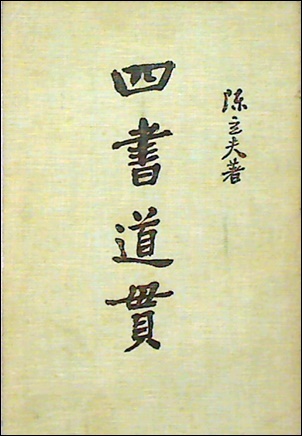 陳立夫著
四書道貫